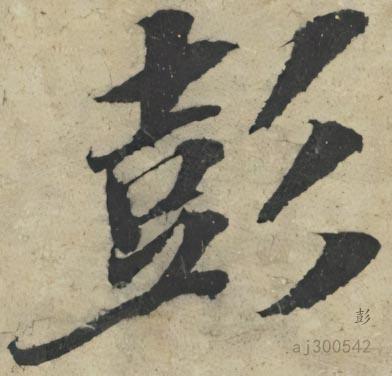 彭
彭
aj300542